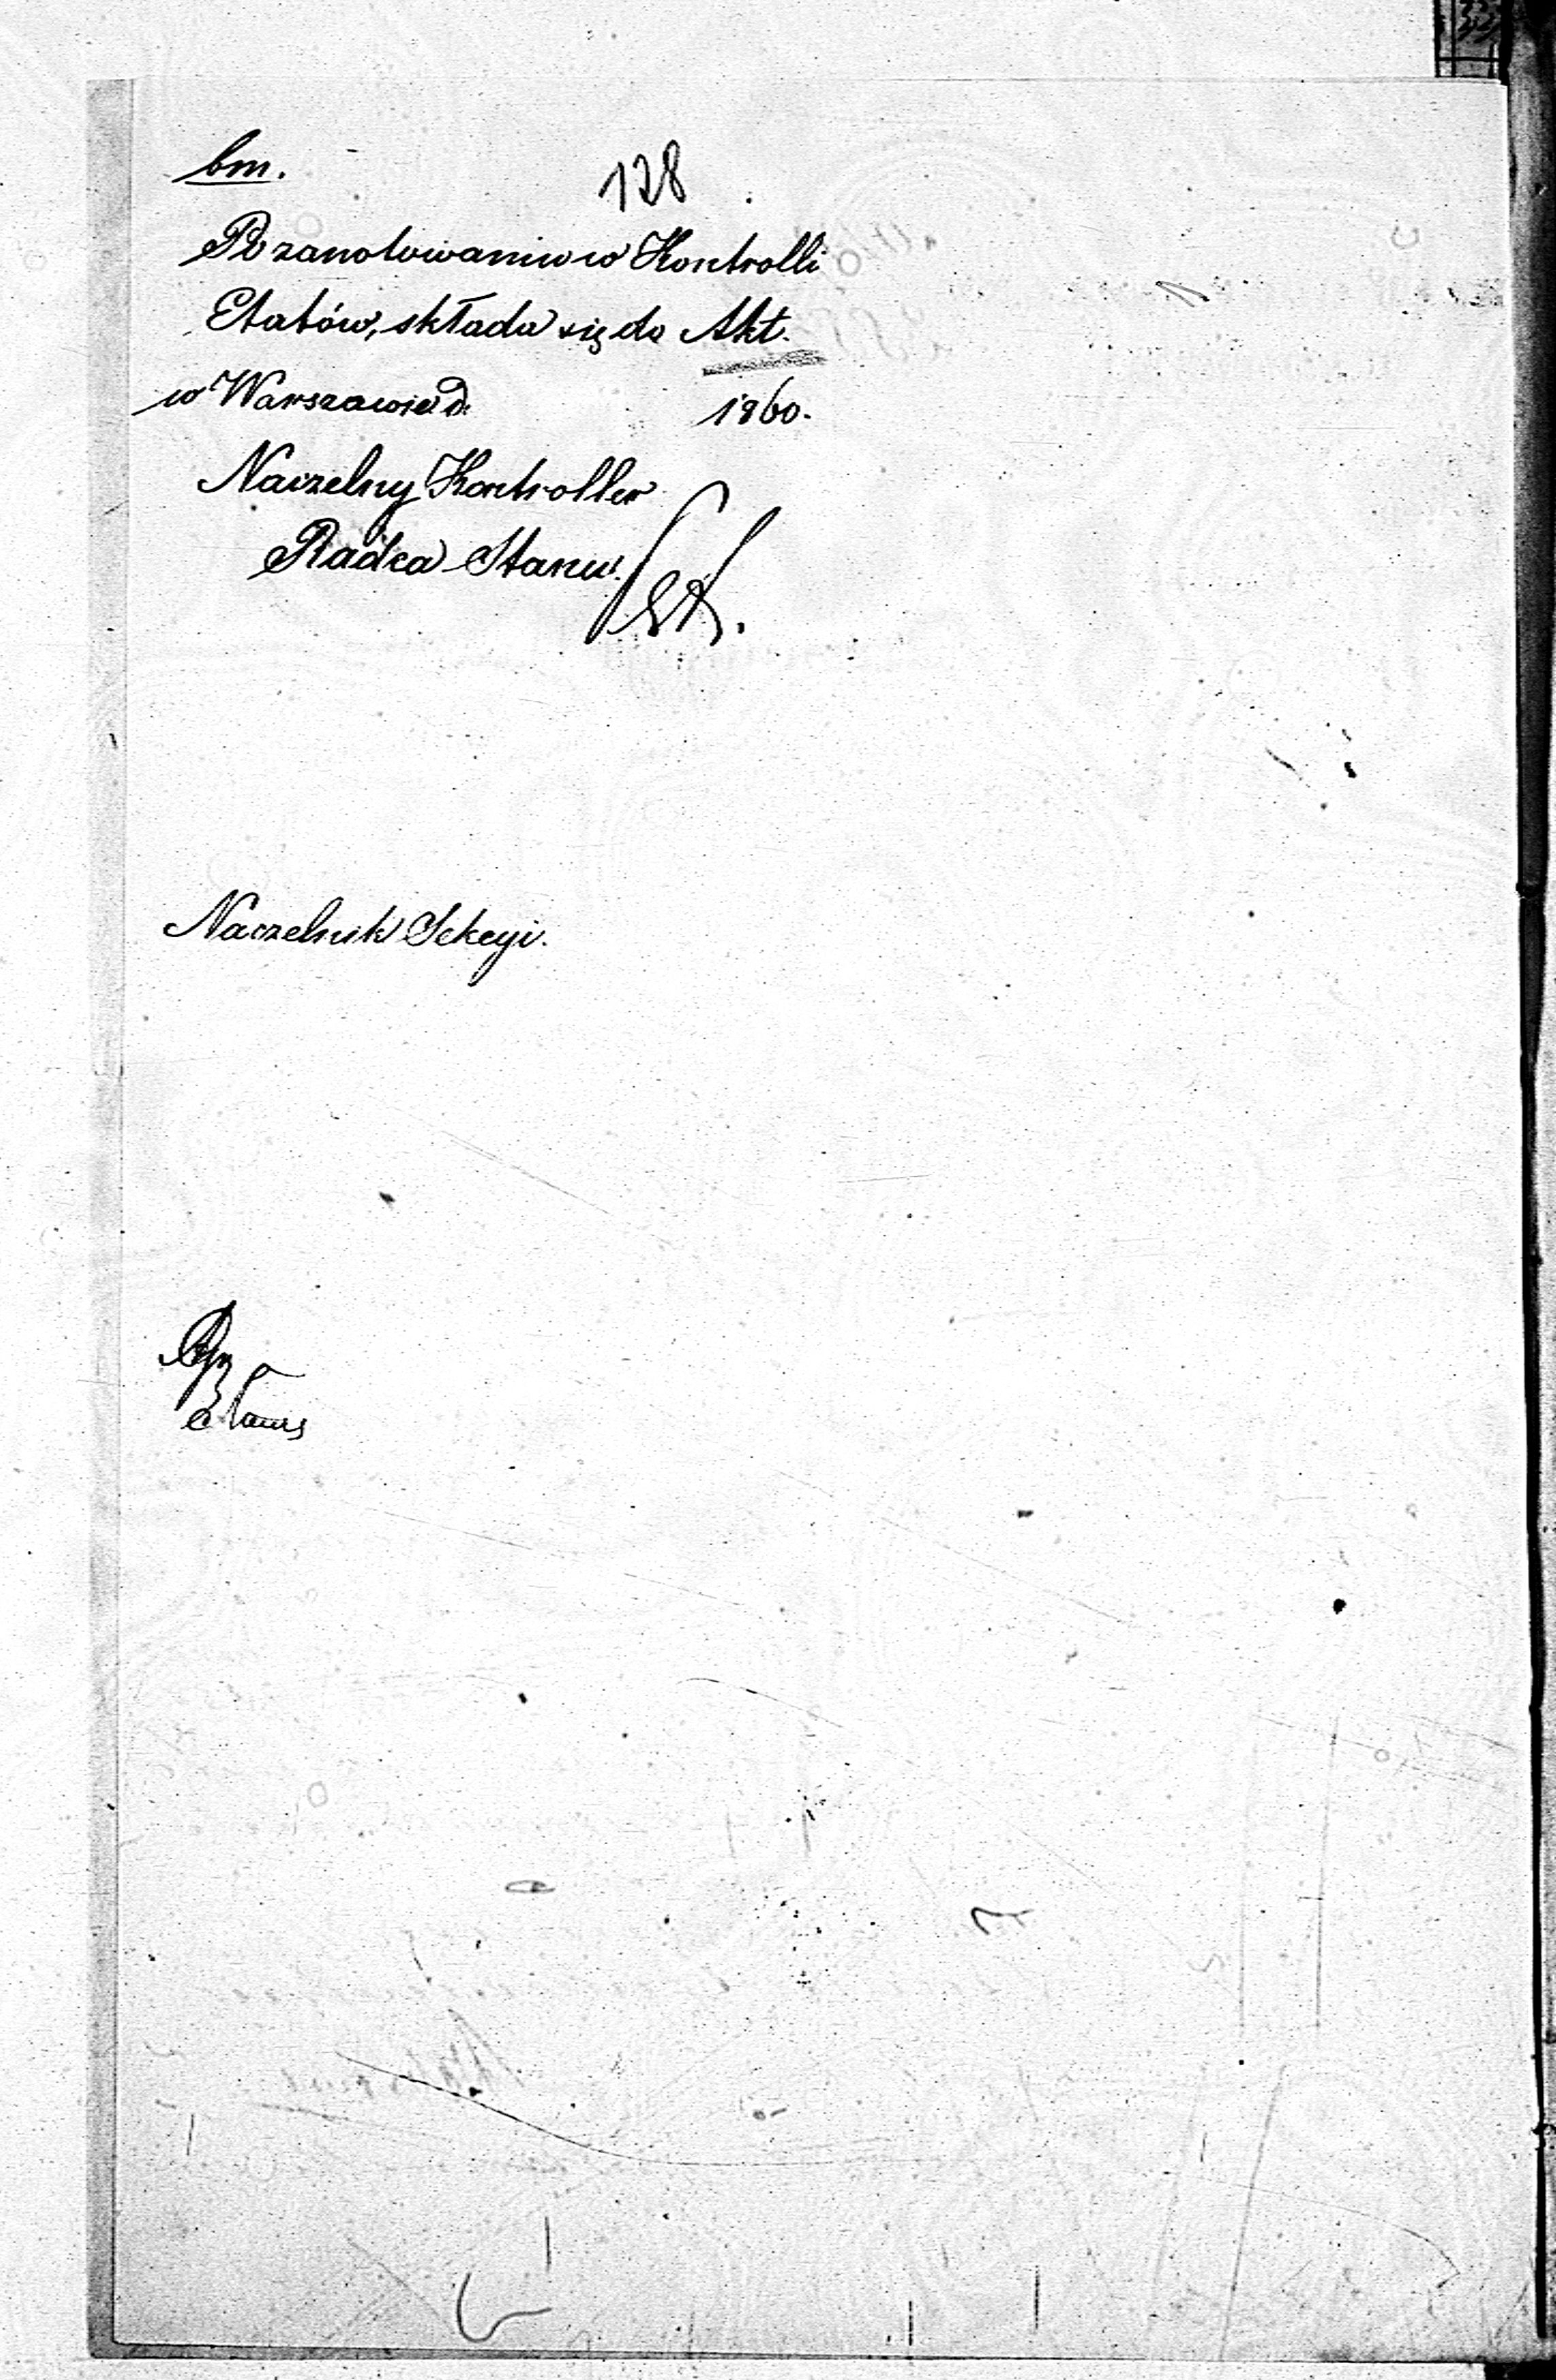 bm.
128
Po zanotowaniu w Kontrolli
Etatów, składa się do Akt.
w Warszawie d. 1860.
Naczelny Kontroller
Radca Stanu
Naczelnik Sekcyi.